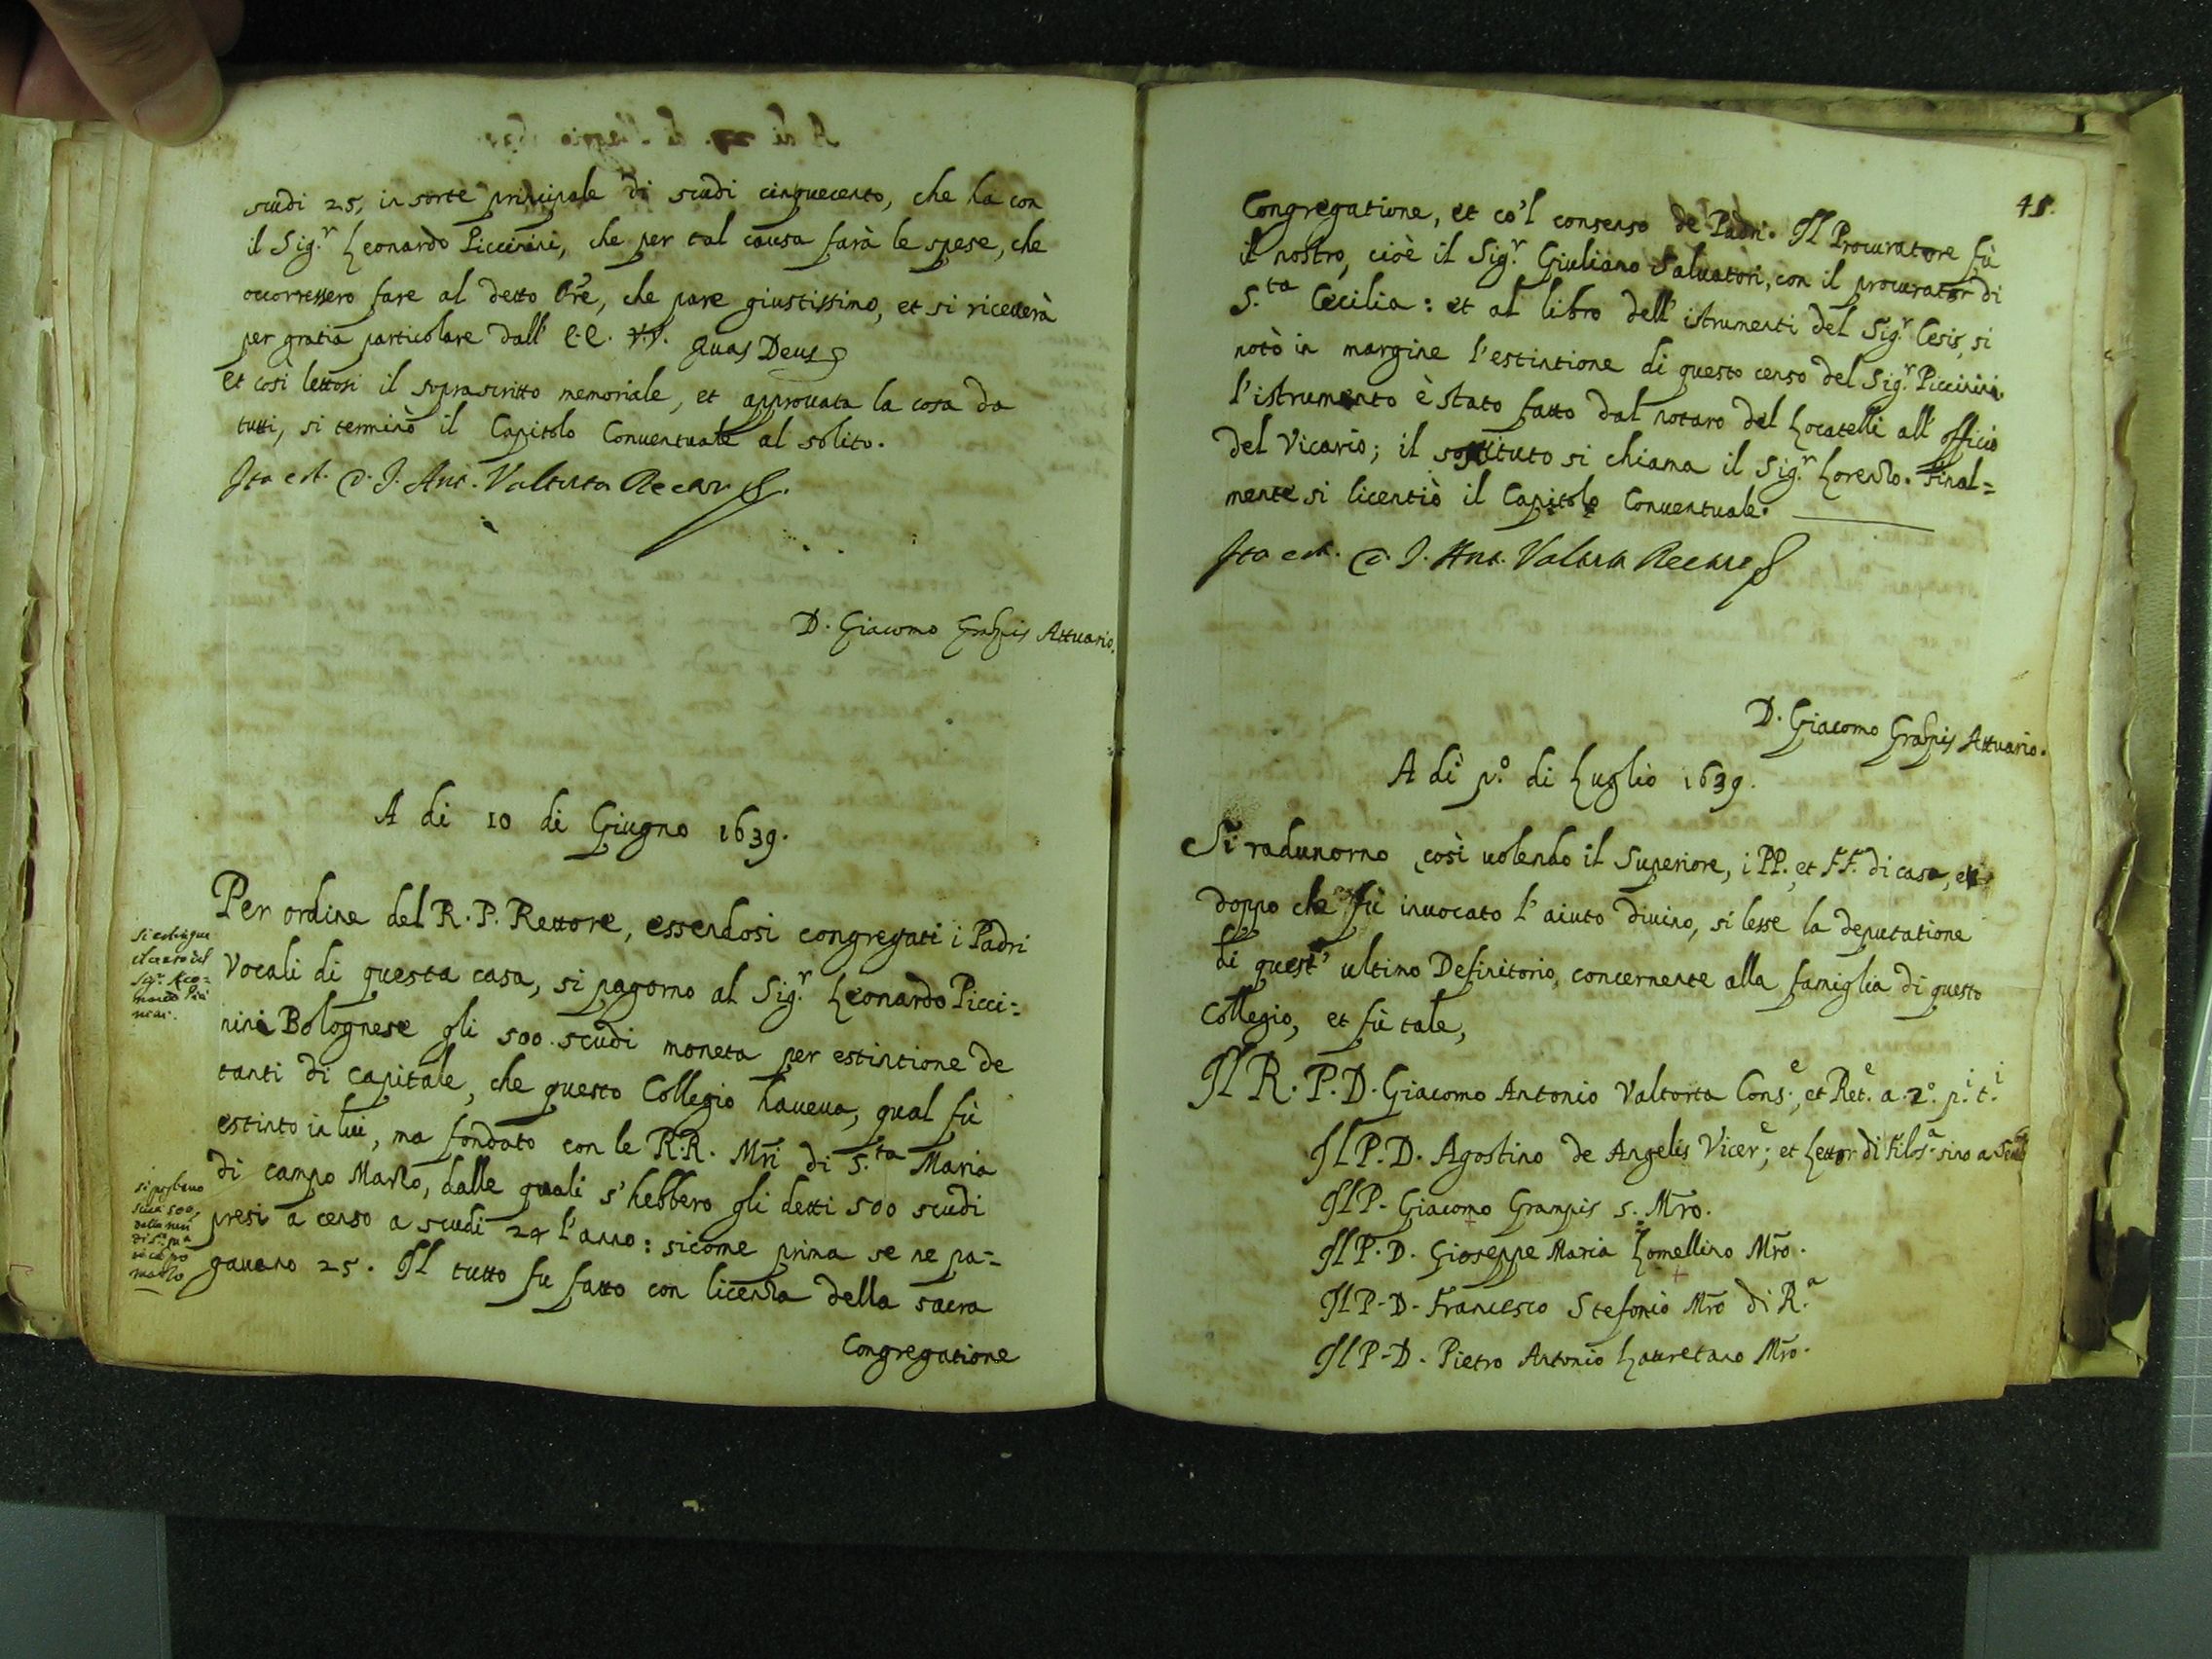 scudi 25, in sorte principale di scudi cinquecento, che ha con
il Sig.r Leonardo Piccinini, che per tal causa farà le spese, che
occorressero fare al detto Ore, che pare giustissimo, et si riceverà
per gratia particolare dall' E.E. V.V. Quas Deus
et così lettosi il soprascritto memoriale, et approuata la cosa da
tutti, si terminò il Capitolo Conuentuale al solito.
Ita est. D. J. Ant. Valtorta Rector
D. Giacomo Grampis Attuario.
A di 10 di Giugno 1639.
Per ordine del R. P. Rettore, essendosi congregati i Padri
Vocali di questa casa, si pagorno al Sig.r Leonardo Picci=
nini Bolognese gli 500 scudi moneta per estintione de
tanti di capitale, che questo Collegio haueua, qual fù
estinto in lui, ma fondato con le R.R. Mri di S.ta Maria
di campo Marzo, dalle quali s'hebbero gli detti 500 scudi
presi a censo a scudi 24 l'anno: sicome prima se ne pa=
gauano 25. Il tutto fu fatto con licenza della sacra
Congregatione
si estingue
il censo del
Sig.r Leo=
nardo Pici
nini.
si pigliano
scudi 500
dalle
di S.ta
di cāpo
marzo
45.
Congregatione, et co'l consenso de Padri. Il Procuratore fù
il nostro, cioè il Sig.r Giuliano Saluatori, con il procurator di
S.ta Cecilia: et al libro dell' istrumenti del Sig.r Cesis, si
notò in margine l'estintione di questo censo del Sig.r Piccinini.
l'istrumento è stato fatto dal notaro del Locatelli all' officio
del Vicario; il sostituto si chiama il Sig.r Lorenzo. Final=
mente si licentiò il Capitolo Conuentuale.
Ita est. D. J. Ant. Valtorta Rector
D. Giacomo Grampis Attuario.
A dì p.o di Luglio 1639.
Si radunorno così uolendo il Superiore, i PP. et FF. di casa, et
doppo che fù inuocato l'aiuto diuino, si lesse la deputatione
di quest' ultimo Definitorio, concernente alla famiglia di questo
Collegio, et fù tale,
Il R. P. D. Giacomo Antonio Valtorta Cons.e, et Ret.e a 2.o p.i t.i
Il P. D. Agostino de Angelis Vicer.e; et Lettor di Filos.a sino a
Il P. Giacomo Grampis s. Mro.
Il P. D. Gioseppe Maria Lomellino Mro.
Il P. D. Francesco Stefonio Mro di R.a
Il P. D. Pietro Antonio Lauretano Mro.